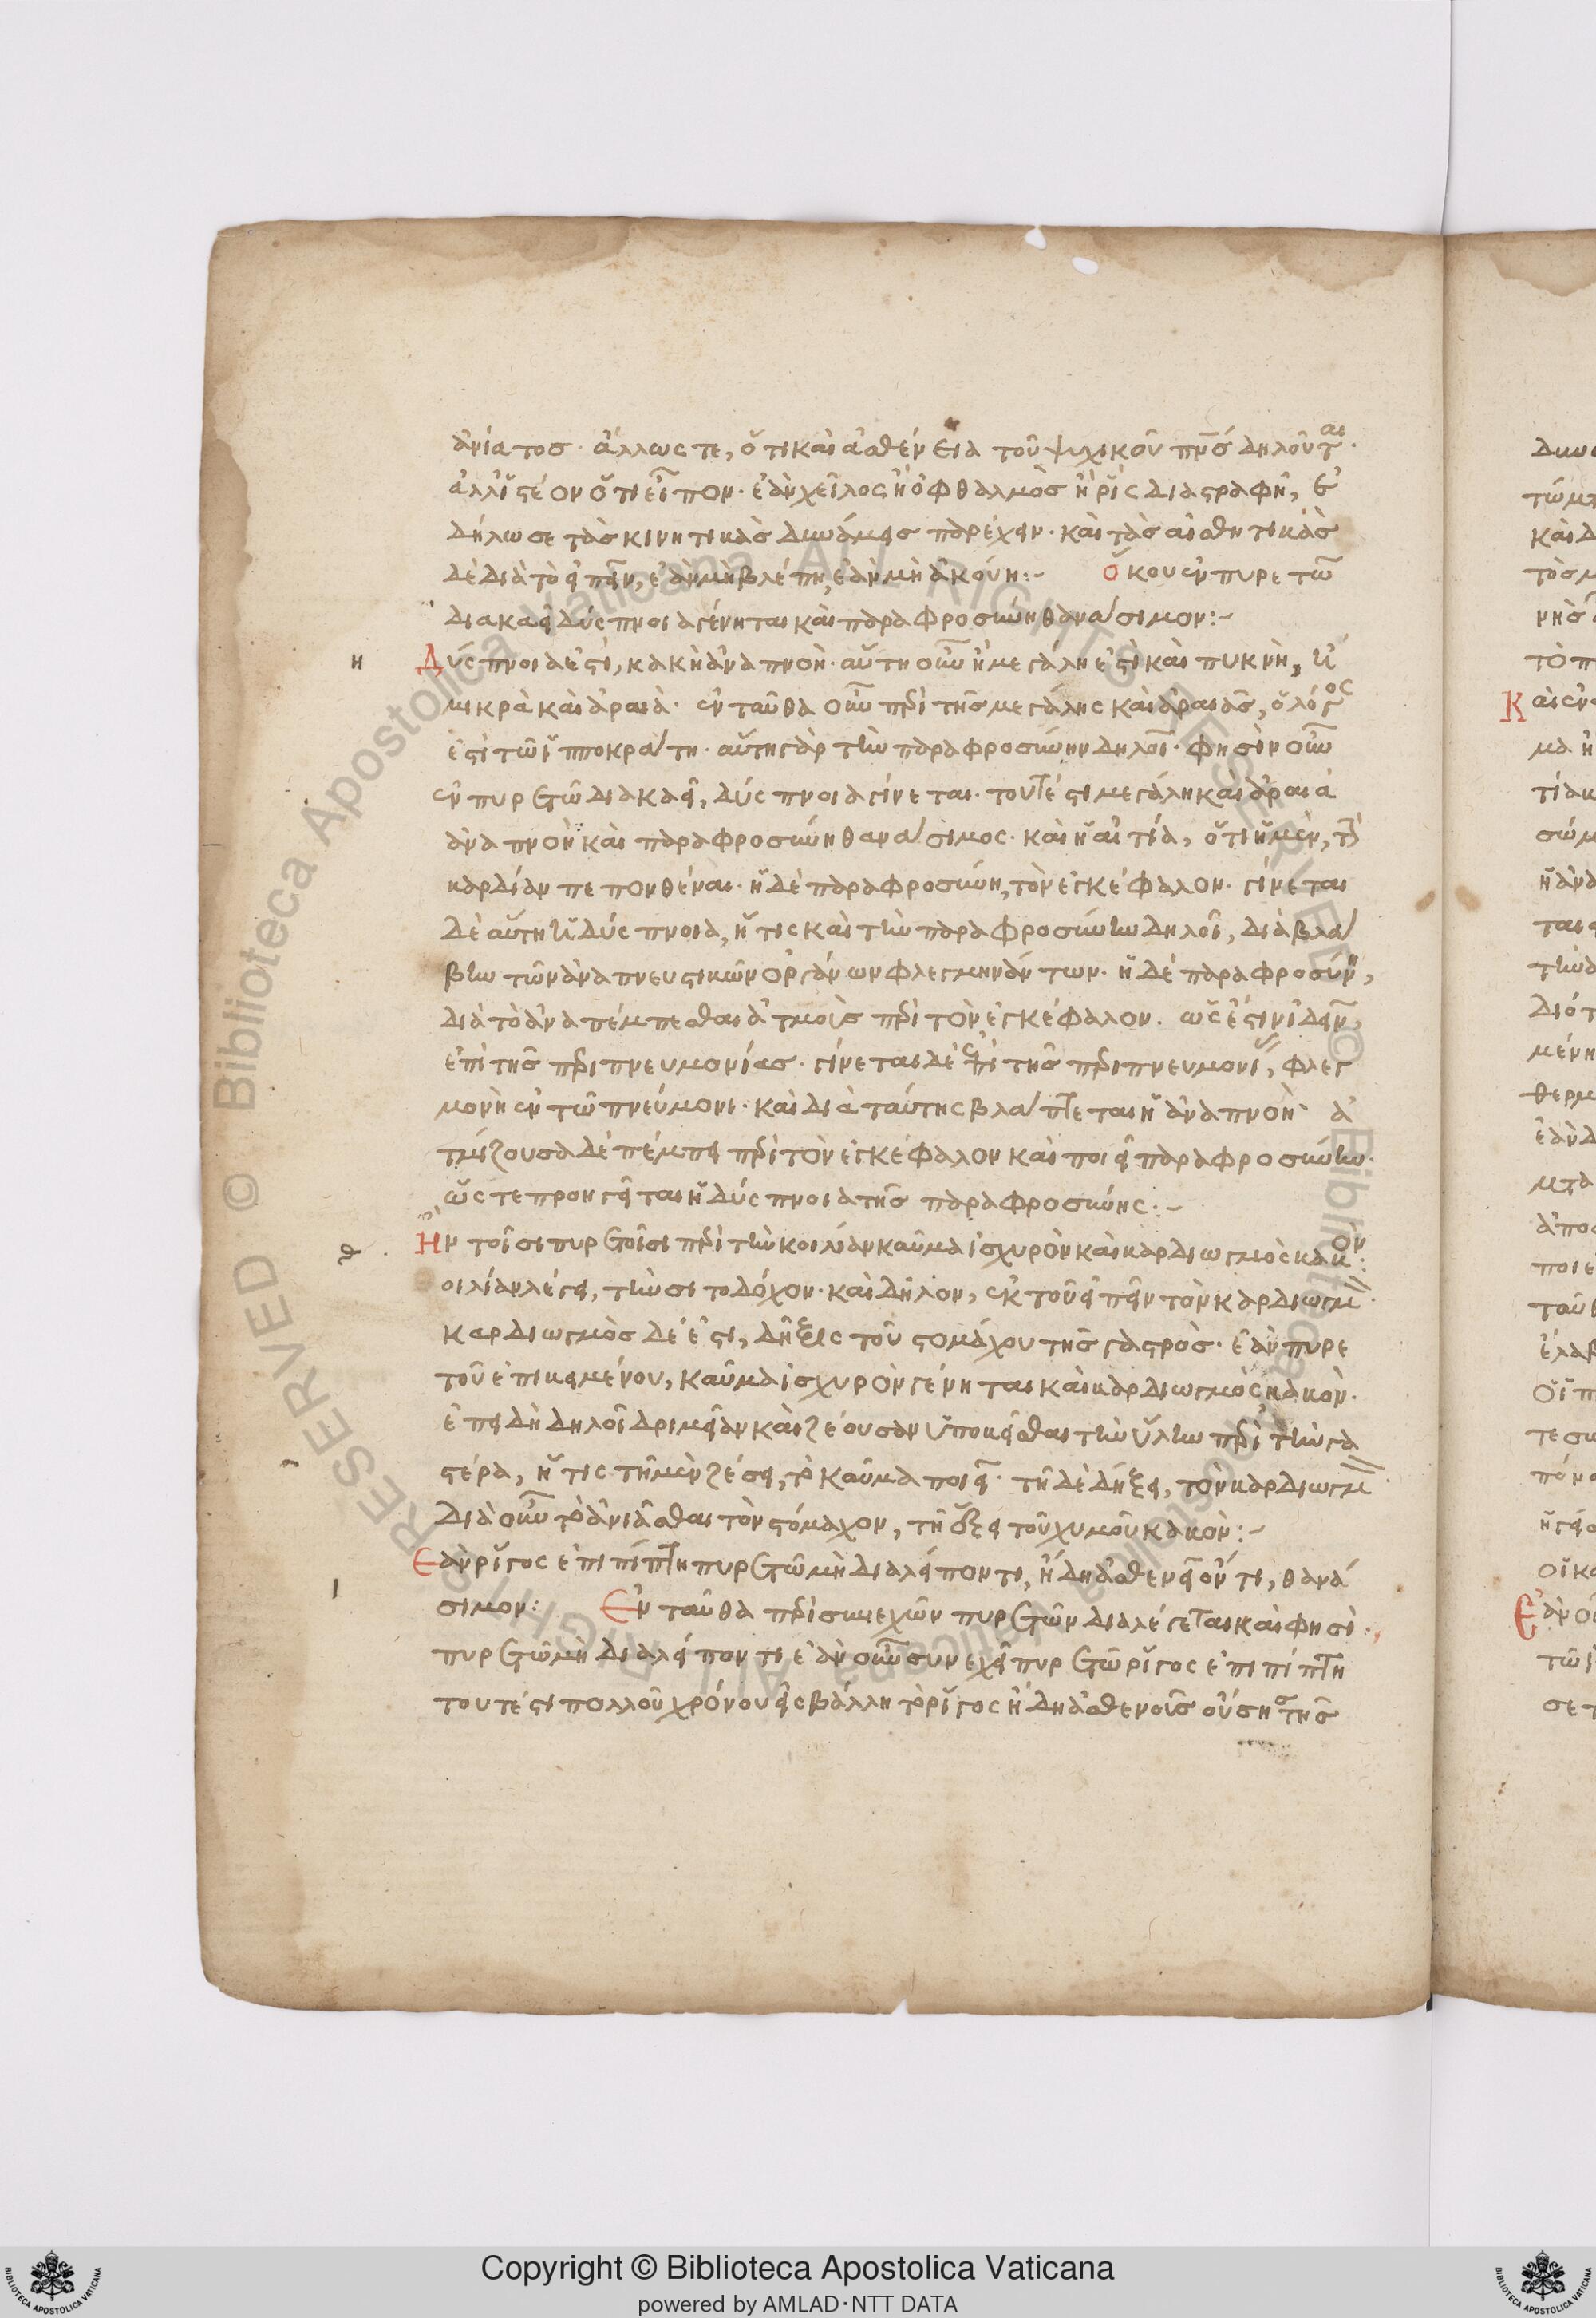 ἀνίατος· ἄλλως τε, ὅτι καὶ ἀσθένεια τοῦ ψυχικοῦ πνς δηλοῦται·
ἀλλ' ἰστέον ὅτι εἰπὼν· ἐὰν χεῖλος ἢ ὀφθαλμὸς ἢ ῥὶς διαστραφῆ,
δήλωσε τὰς κινητικὰς δυνάμεις παρέχειν· καὶ τὰς αἰσθητικὰς
δὲ διὰ τὸ εἰπεῖν, ἐὰν μὴ βλέπη, ἐὰν μὴ ἀκούη:- ὅκου ἐν πυρετῶ
διακαεῖ δύσπνοια γένηται καὶ παραφροσύνη θανάσιμον:-
η Δύσπνοια ἐστὶ, κακὴ ἀναπνοὴ· αὕτη οὖν ἢ μεγάλη ἐστὶ καὶ πυκνὴ, ἢ
μικρὰ καὶ ἀραιὰ· ἐνταῦθα οὖν περὶ τῆς μεγάλης καὶ ἀραιᾶς, ὁ λόγος
ἐστὶ τῶ ἱπποκράτη· αὕτη γὰρ τὴν παραφροσύνην δηλοῖ· φησὶν οὖν
ἐν πυρετῶ διακαεῖ, δύσπνοια γίνεται· τουτέστι μεγάλη καὶ ἀραιὰ
ἀναπνοὴ καὶ παραφροσύνη θανάσιμος· καὶ ἡ αἰτία, ὅτι ἡ μὲν, τὴν
καρδίαν πεπονθέναι· ἡ δὲ παραφροσύνη, τὸν ἐγκέφαλον· γίνεται
δὲ αὕτη ἡ δύσπνοια, ἥτις καὶ τὴν παραφροσύνην δηλοῖ, διὰ βλά
βην τῶν ἀναπνευστικῶν ὀργάνων φλεγμηνάντων· ἡ δὲ παραφροσύνη,
διὰ τὸ ἀναπέμπεσθαι ἀτμοὺς περὶ τὸν ἐγκέφαλον· ὡς ἔστιν ἰδεῖν,
ἐπὶ τῆς περιπνευμονίας· γίνεται δὲ ἐπὶ τῆς περιπνευμονίας, φλεγ
μονὴ ἐν τῶ πνεύμονι· καὶ διὰ ταύτης βλάπτεται ἡ ἀναπνοὴ· ἀ
τμίζουσα δὲ πέμπει περὶ τὸν ἐγκέφαλον καὶ ποιεῖ παραφροσύνην·
ὥστε προηγεῖται ἡ δύσπνοια τῆς παραφροσύνης:-
θ Ἢν τοῖσι πυρετοῖσι περὶ τὴν κοιλίαν καῦμα ἰσχυρὸν καὶ καρδιωγμὸς κακὸν:
οιλίαν λέγει, τὴν σιτοδόχον· καὶ δῆλον, ἐκ τοῦ εἰπεῖν τὸν καρδιωγμ·
καρδιωγμὸς δέ ἐστι, δῆξις τοῦ στομάχου τῆς γαστρὸς· ἐὰν πυρε
τοῦ ἐπικειμένου, καῦμα ἰσχυρὸν γένηται καὶ καρδιωγμὸς κακὸν·
ἐπειδὴ δηλοῖ δριμεῖαν καὶ ζέουσαν ὑποκεῖσθαι τὴν ὕλην περὶ τὴν γα
στέρα, ἥτις τῆ μὲν ζέσει, τὸ καῦμα ποιεῖ· τῆ δὲ δήξει, τὸν καρδιωγμ·
διὰ οὖν τὸ ἀνιᾶσθαι τὸν στόμαχον, τῆ δήξει τοῦ χυμοῦ κακὸν:-
ι Ἐὰν ῥῖγος ἐπιπίπτη πυρετῶ μὴ διαλείποντι, ἤδη ἀσθενεῖ ὄντι, θανά
σιμον: Ἐνταῦθα περὶ συνεχῶν πυρετῶν διαλέγεται καὶ φησὶ·
πυρετῶ μὴ διαλείποντι ἐὰν οὖν συνεχεῖ πυρετῶ ῥῖγος ἐπιπίπτη
τουτέστι πολλοῦ χρόνου εἰσβάλλη τὸ ῥῖγος ἤδη ἀσθενοῦς οὔσης τῆς